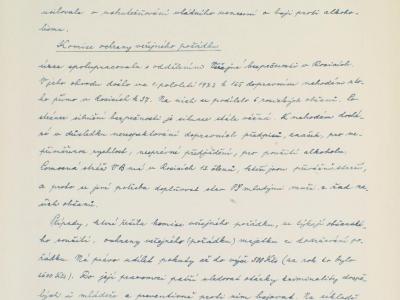 usilovala o uskutečňování vládního usnesení o boji proti alkoho-
lismu.
Komise ochrany veřejného pořádku
úzce spolupracovala s oddělením Veřejné bezpečnosti v Rosicích.
V jeho obvodu došlo v I. pololetí 1973 k 155 dopravním nehodám a to-
ho přímo v Rosicích k 37. Na nich se podílelo 6 rosických občanů. Po
stránce silniční bezpečnosti je situace stále vážná. K nehodám dochá-
zí v důsledku nerespektování dopravních předpisů, značek, pro ne-
přiměřenou rychlost, nesprávné předjíždění, pro požití alkoholu.
Pomocná stráž VB má v Rosicích 12 členů, kteří jsou
a proto se jeví potřeba doplňovat stav PS mladými muži z řad na-
šich občanů.
Případy, které řešila komise veřejného pořádku, se týkají občanské-
ho soužití, ochrany veřejného (pořádku) majetku a dodržování po-
řádku. Má právo udělit pokuty až do výše 500 Kčs (za rok to bylo
1600 Kčs). Do její pracovní patří sledovat otázky kriminality dospě-
lých i mládeže a preventivně proti nim bojovat. Na základě